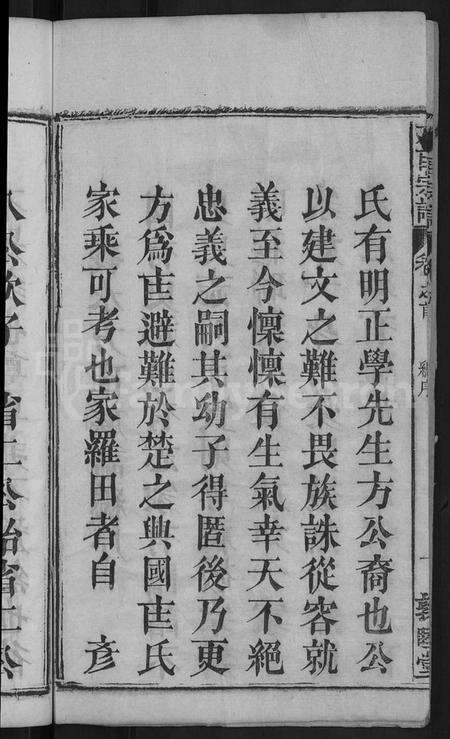 氏有明正學先生方公裔也公
以建文之難不畏族誅從容就
義至今懍懍有生氣幸天不絕
忠義之嗣其功子得匿後乃更
方爲𠀍避難於楚之興國𠀍氏
家乘可考也家羅田者自　彥
宗譜
卷之首
敦睦堂